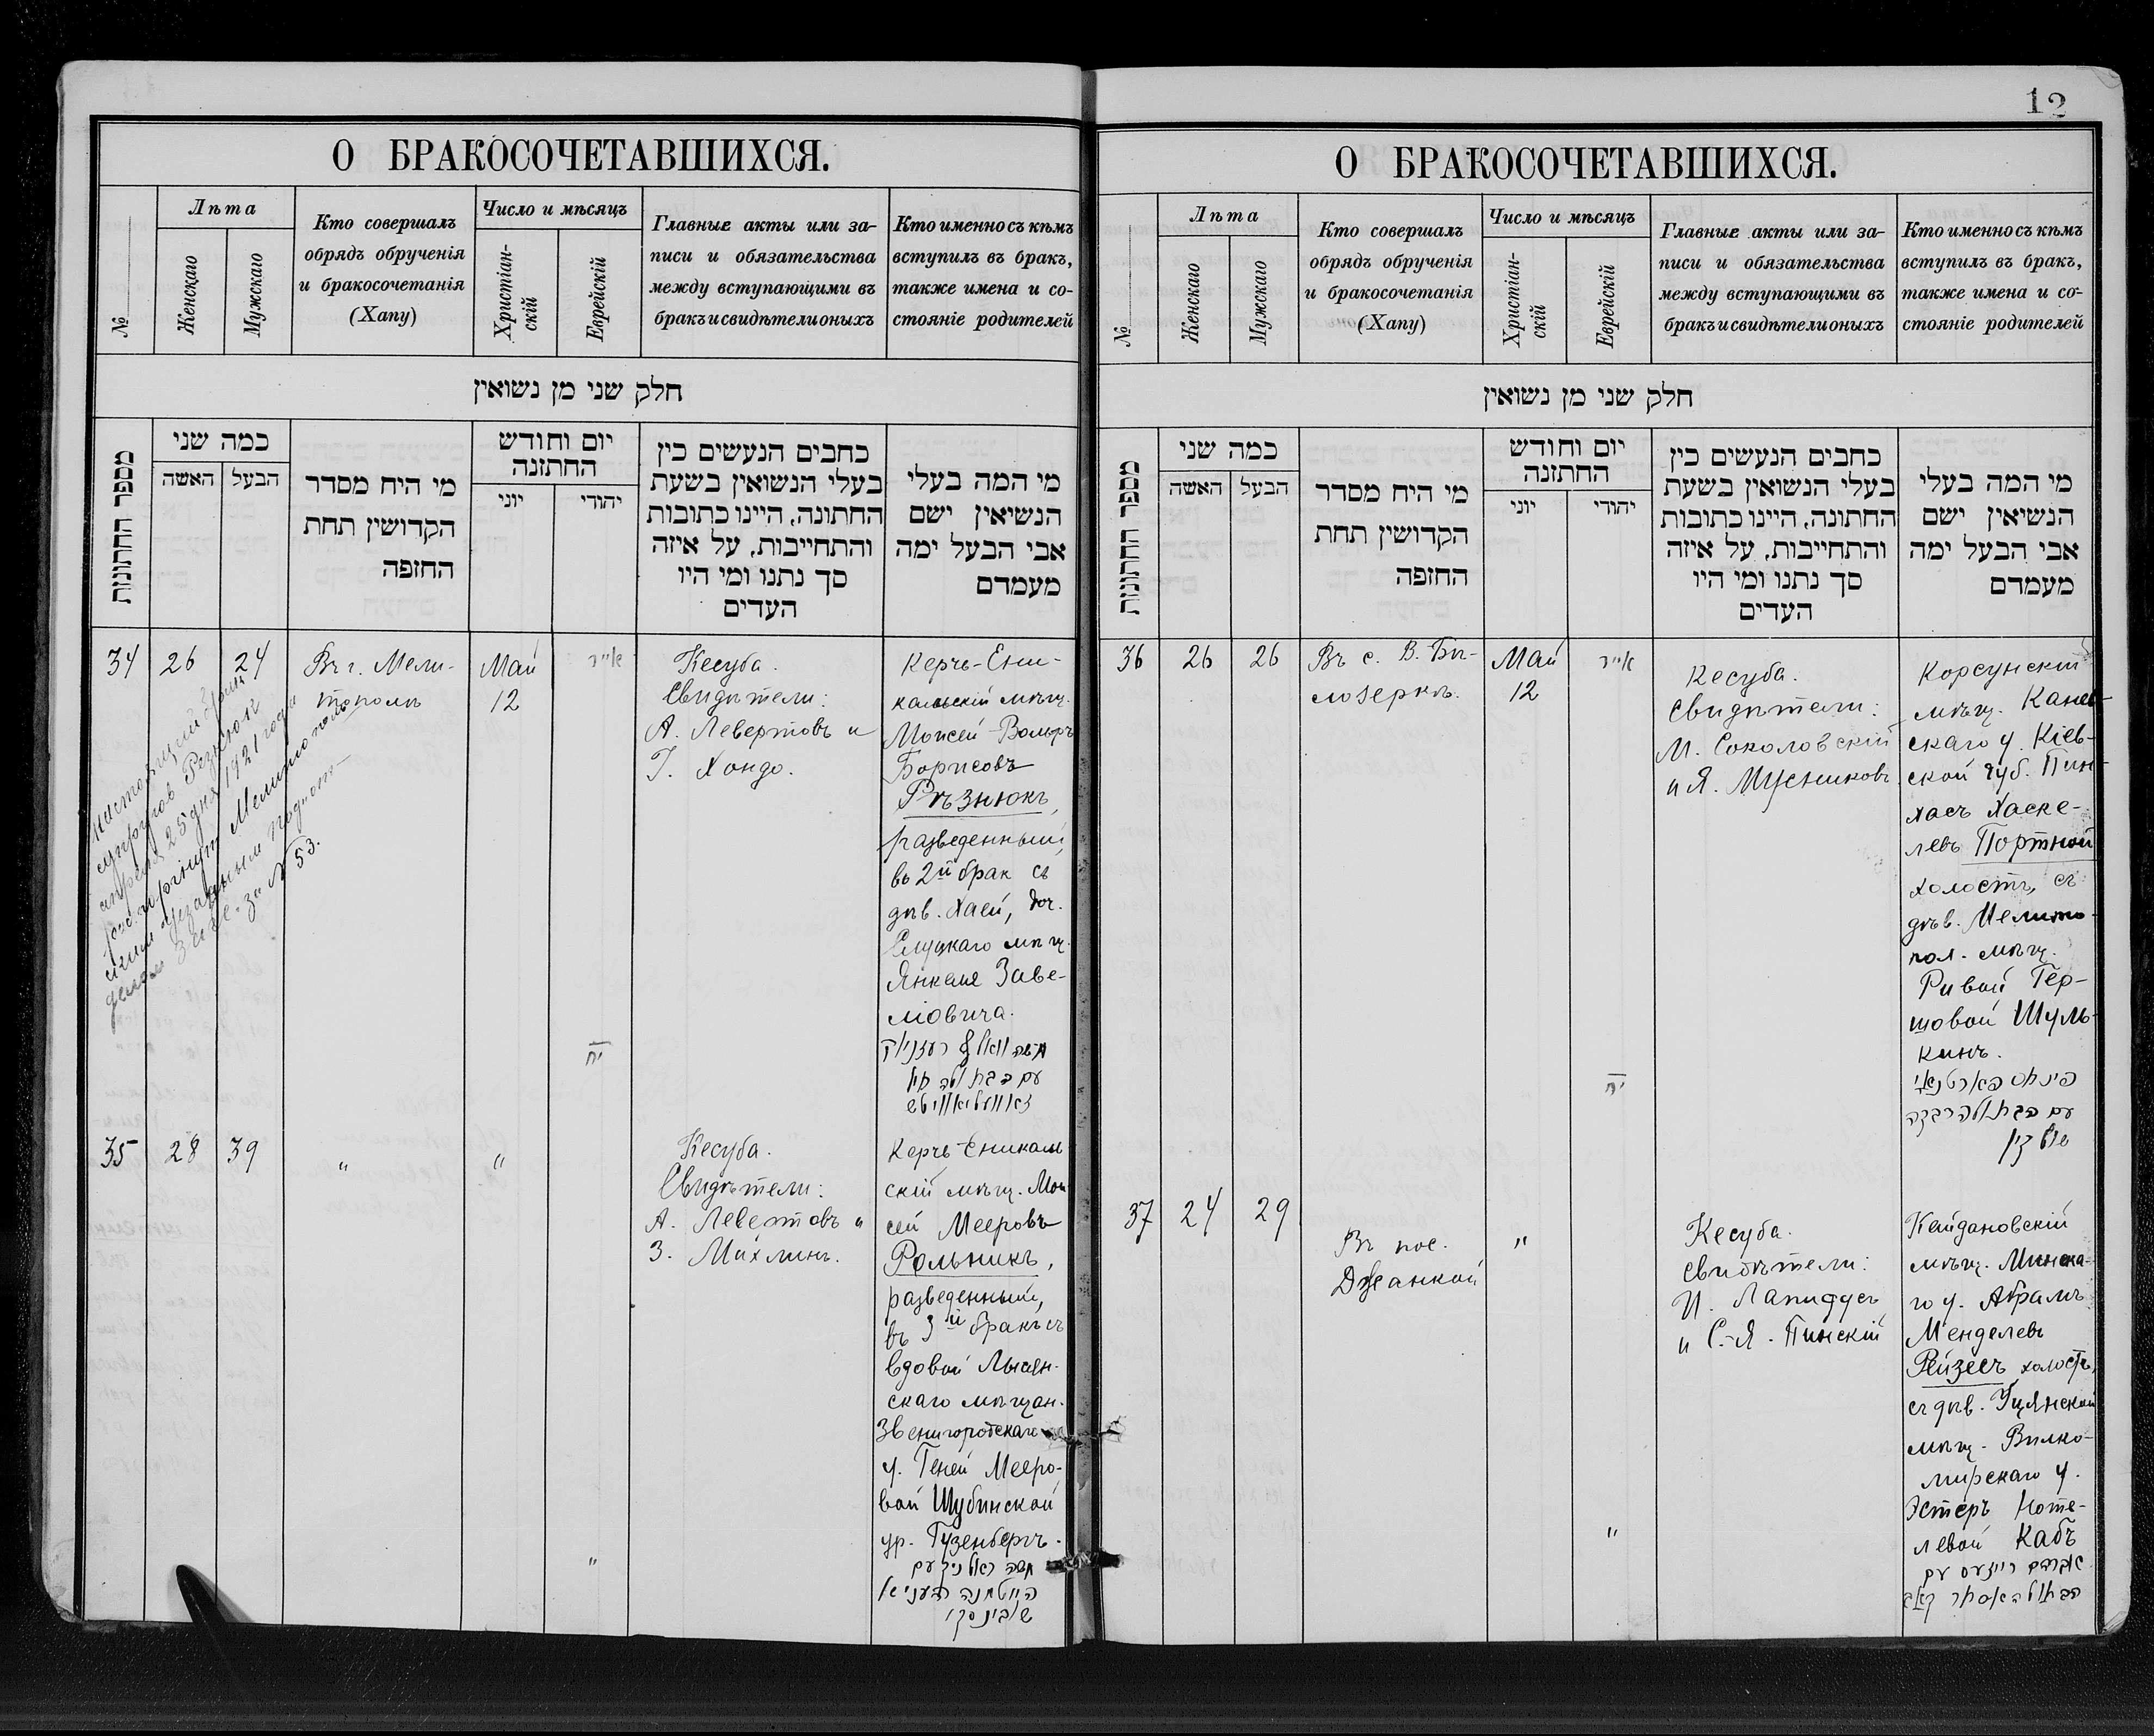 12
О БРАКОСОЧЕТАВШИХСЯ.
№
Лѣта
Женскаго
Мужскаго
Кто совершалъ
обрядъ обрученія
и бракосочетанія
(Хапу)
Число и мѣсяцъ
Христіан-
скій
Еврейскій
Главные акты или за-
писи и обязательства
между вступающими въ
бракъ и свидѣтели оныхъ
Кто именно съ кѣмъ
вступилъ въ бракъ,
также имена и со-
стояніе родителей
חלק שני מן נשואין
מספר החתונות
כמה שני
האשה
הבעל
מי היח מסדר
הקדושין תחת
החזפה
יום וחודש
החתונה
יוני
יהודי
כחבים הנעשים כין
בעלי הנשואין בשעת
החתונה, היינו כתובות
והתחייבות, על איזה
סך נתנו ומי היו
העדים
מי המה בעלי
הנשיאין ישם
אבי הבעל ימה
מעמדם
34
26
24
Въ г. Мели-
тополѣ
Май
12
אייר
יח
Кесуба.
Свидѣтели:
А. Левертовъ и
Г. Хондо.
Керчь-Ени-
кальскій мѣщ.
Моисей-Вольфъ
Борисовъ
Рѣзнюкъ,
разведенный,
во 2й брак съ
дѣв. Хаей, доч.
Слуцкаго мѣщ.
Янкеля Заве-
ліовича.
משה וואלף רעזניוק
עם הבתולה חיי
זאוועליאוויטש
супругов Резнюк
апреля 25 дня 1921 года
за № 53.
35
28
39
"
"
"
Кесуба.
Свидѣтели:
А. Левертовъ и
З. Михлинъ.
Керчь-Еникаль
скій мѣщ. Мои
сей Мееровъ
Рольникъ,
разведенный,
въ 3й бракъ съ
вдовой Лысян-
скаго мѣщан.
Звенигородскаго
у. Геней Мееро-
вой Шубинской
ур. Гузенбергъ.
משה ראלניק עם
האלמנה העניא
שובינסקי
О БРАКОСОЧЕТАВШИХСЯ.
№
Лѣта
Женскаго
Мужскаго
Кто совершалъ
обрядъ обрученія
и бракосочетанія
(Хапу)
Число и мѣсяцъ
Христіан-
скій
Еврейскій
Главные акты или за-
писи и обязательства
между вступающими въ
бракъ и свидѣтели оныхъ
Кто именно съ кѣмъ
вступилъ въ бракъ,
также имена и со-
стояніе родителей
חלק שני מן נשואין
מספר החתונות
כמה שני
האשה
הבעל
מי היח מסדר
הקדושין תחת
החזפה
יום וחודש
החתונה
יוני
יהודי
כחבים הנעשים כין
בעלי הנשואין בשעת
החתונה, היינו כתובות
והתחייבות, על איזה
סך נתנו ומי היו
העדים
מי המה בעלי
הנשיאין ישם
אבי הבעל ימה
מעמדם
36
26
26
Въ с. В. Бѣ-
лозеркѣ.
Май
12
אייר
יח
Кесуба.
Свидѣтели:
М. Соколовскій
и Я. Мусниковъ
Корсунскій
мѣщ. Канев-
скаго у. Кіев-
ской губ. Пин-
хасъ Хаске-
левъ Портной
холостъ, съ
дѣв. Мелито-
пол. мѣщ.
Ривой Гер-
шовой Шуль-
кинъ.
פינחס פארטנאי
עם הבתולה רבקה
שולקין
37
24
29
Въ пос.
Джанкой
"
"
Кесуба.
Свидѣтели:
И. Лапидусъ
и С.-Я. Пинскій
Койдановскій
мѣщ. Минска-
го у. Абрамъ
Менделевъ
Рейзесъ холостъ,
съ дѣв. Уцянской
мѣщ. Вилко-
мирскаго у.
Эстеръ Ноте-
левой Кабъ
אברהם רייזעס עם
הבתולה אסתר קאב